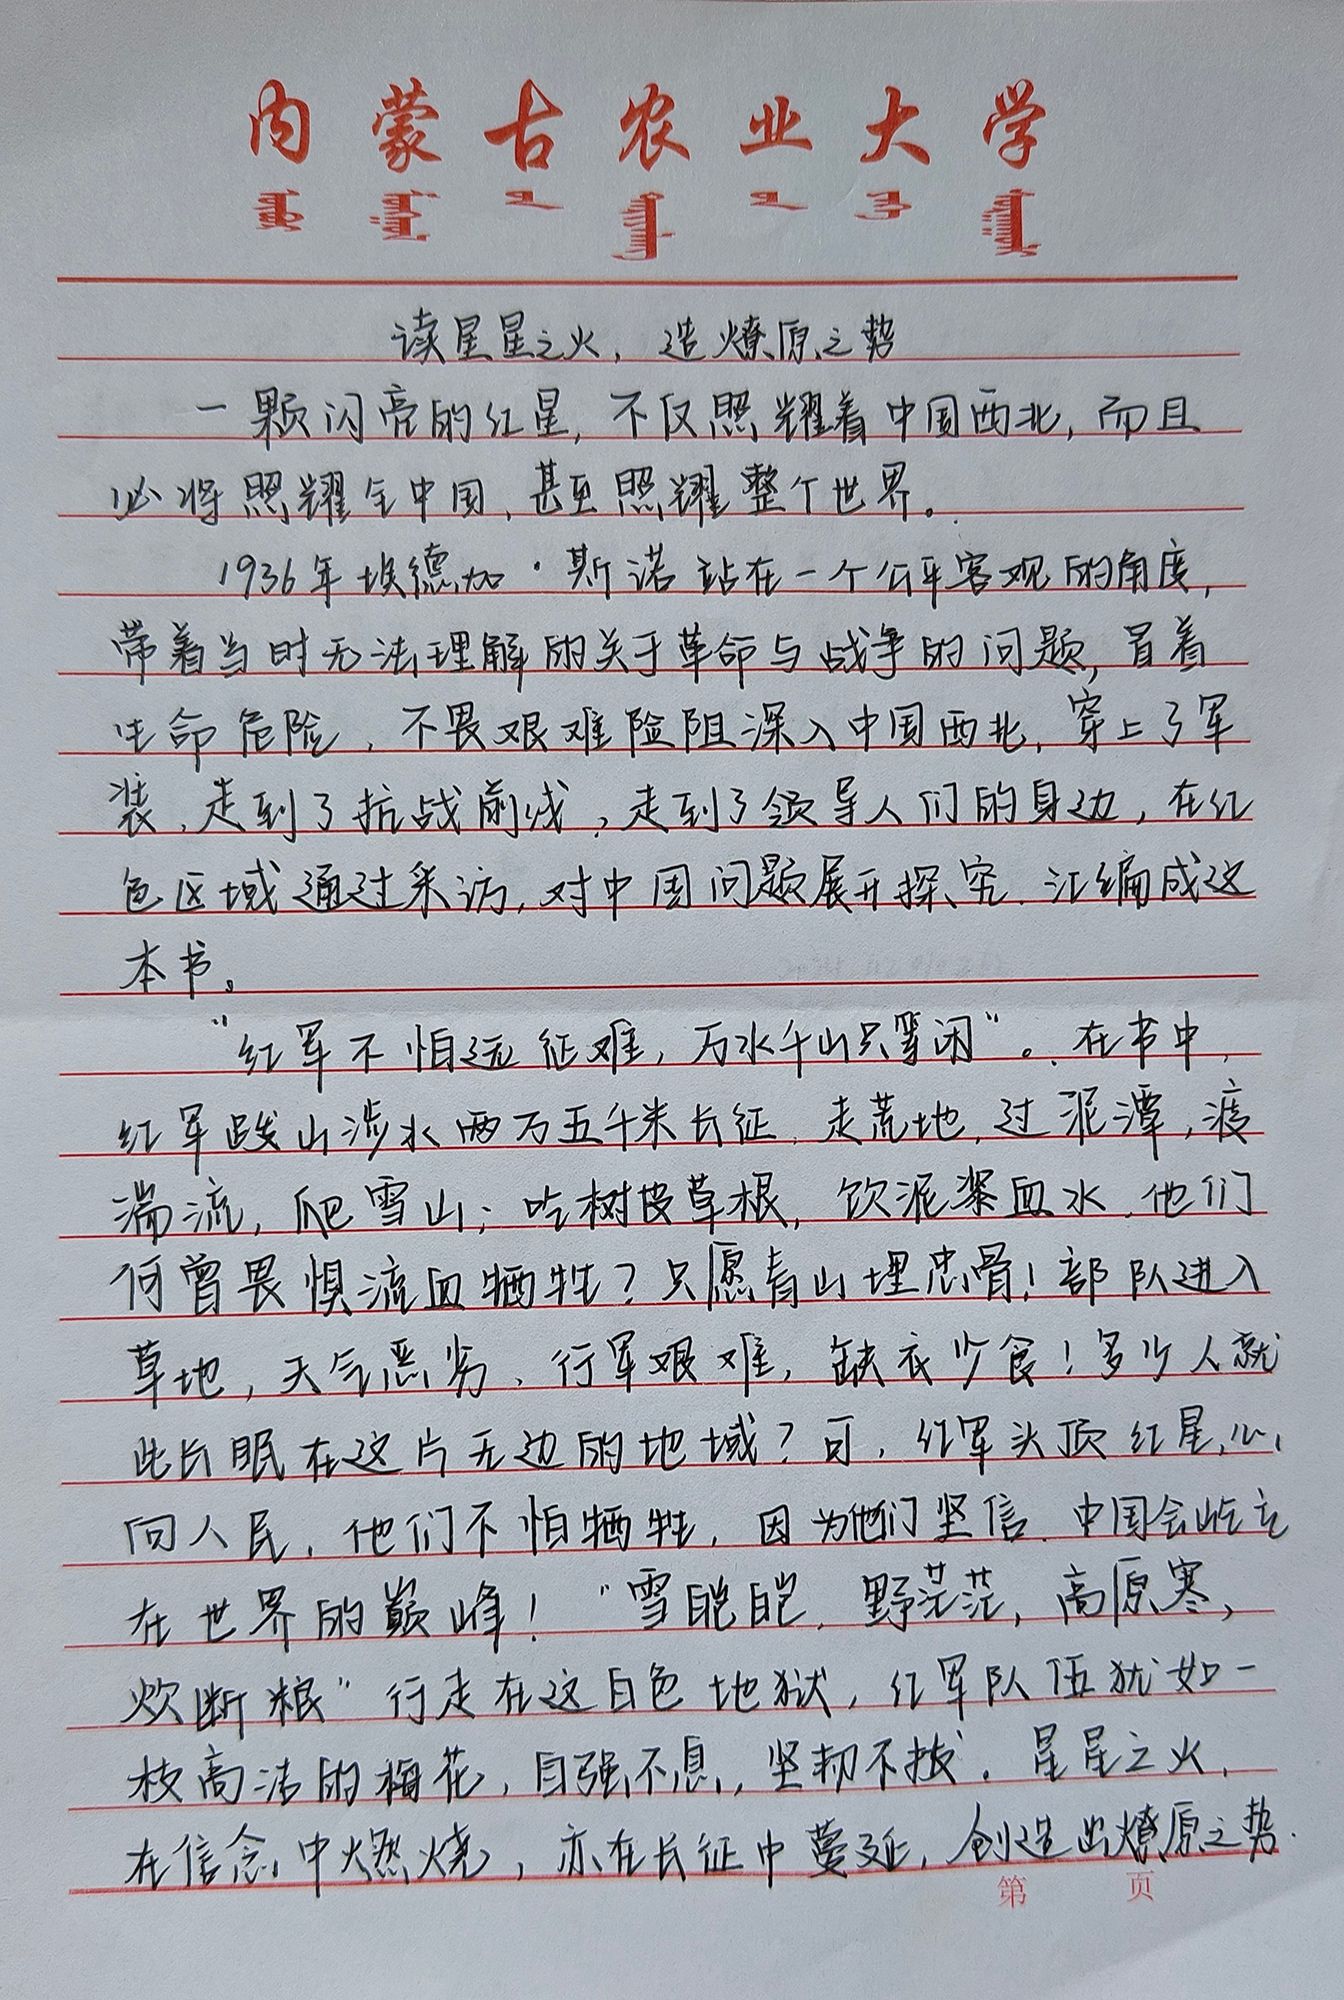 内蒙古农业大学
读星星之火，造燎原之势
一颗闪亮的红星，不仅照耀着中国西北，而且
必将照耀全中国，甚至照耀整个世界。
1936年埃德加·斯诺站在一个公平客观的角度，
带着当时无法理解的关于革命与战争的问题，冒着
生命危险，不畏艰难险阻深入中国西北，穿上了军
装，走到了抗战前线，走到了领导人们的身边，在红
色区域通过采访，对中国问题展开探究，汇编成这
本书。
“红军不怕远征难，万水千山只等闲”。在书中，
红军跋山涉水两万五千米长征，走荒地，过泥潭，渡
湍流，爬雪山；吃树皮草根，饮泥浆血水，他们
何曾畏惧流血牺牲？只愿青山埋忠骨！部队进入
草地，天气恶劣，行军艰难，缺衣少食！多少人就
此长眠在这片无边的地域？可，红军头顶红星，心
向人民，他们不怕牺牲，因为他们坚信，中国会屹立
在世界的巅峰！“雪皑皑，野茫茫，高原寒，
炊断粮”行走在这白色地狱，红军队伍犹如一
枝高洁的梅花，自强不息，坚韧不拔，星星之火，
在信念中燃烧，亦在长征中蔓延，创造出燎原之势.
第 页